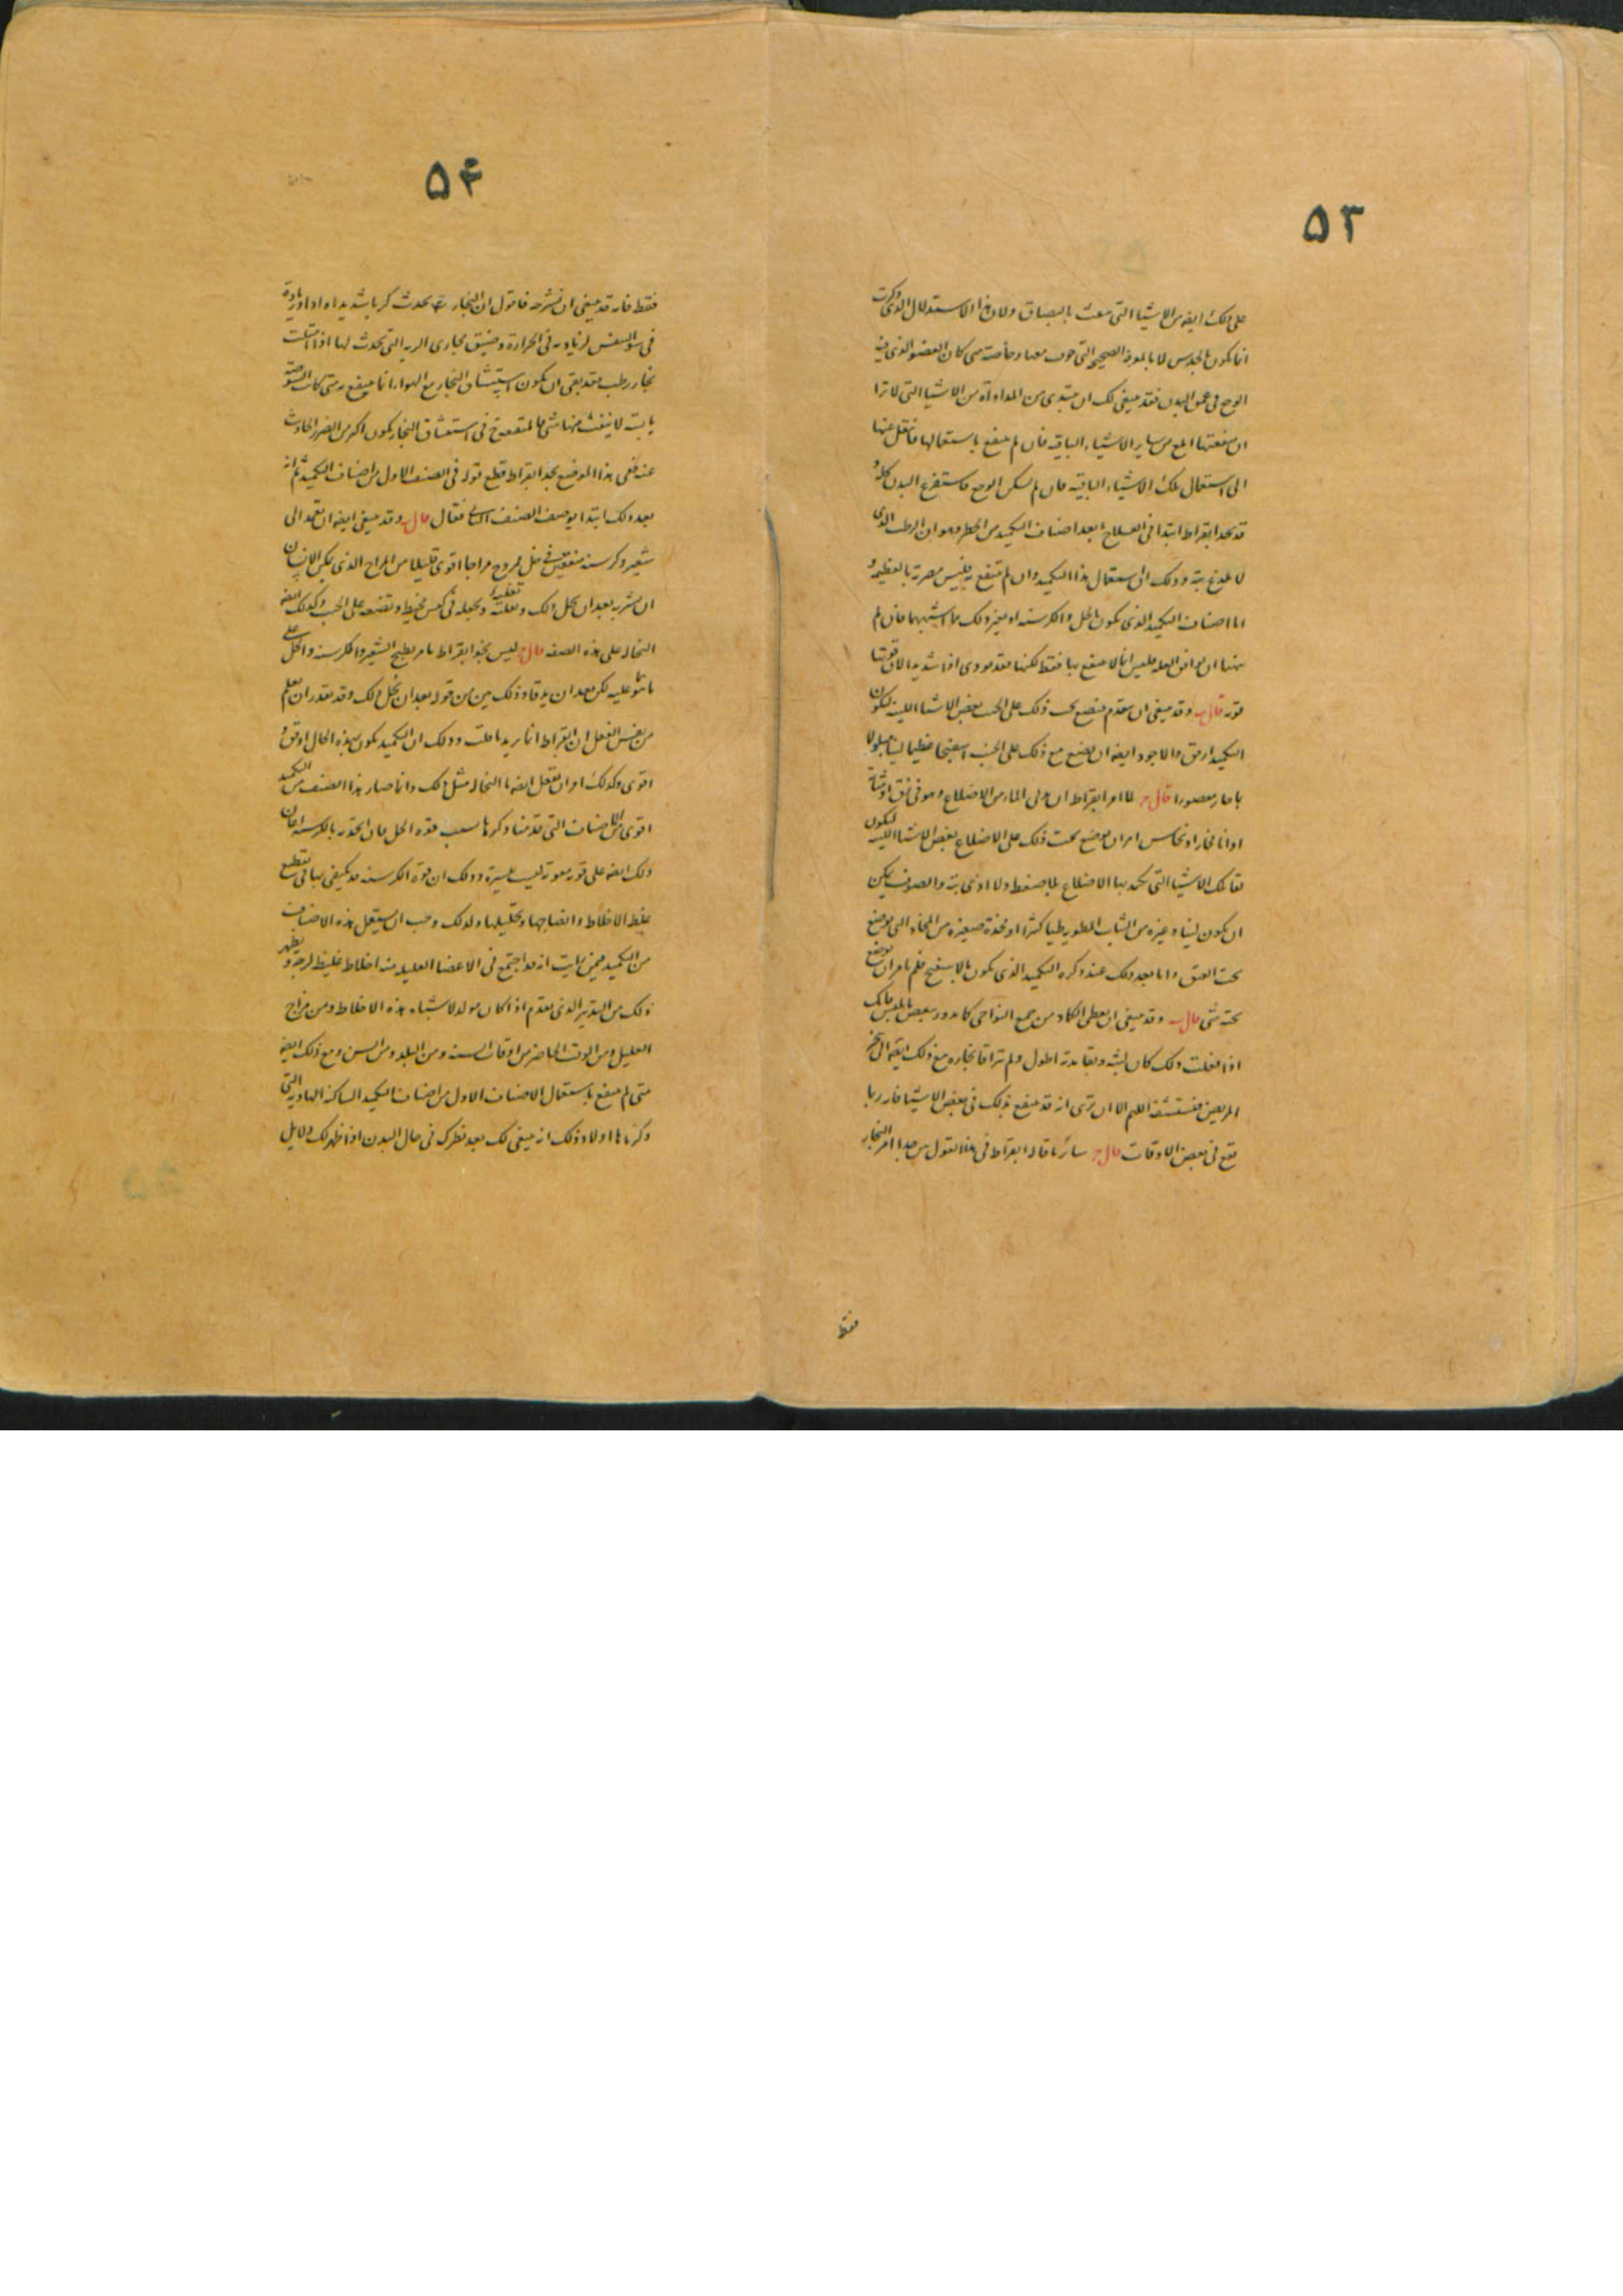 ۵۳
على ذلك ايضا من الاشيا التى تنفث بالبصاق ولان هذا الاستدلال الذى ذكرت
انما يكون بالحدس لا بالمعرفة الصحيحة التى حوت معها وخاصة متى كان العضو الذى فيه
الوجع فى عمق البدن فقد ينبغى لك ان تبتدى من المداواة من الاشيا التى لا ترا
ان منفعتها ابلغ من ساير الاشياء الباقية فان لم ينتفع باستعمالها فانتقل عنها
الى استعمال تلك الاشياء الباقية فان لم يسكن الوجع فاستفرغ البدن كله و
قد نجد ابقراط ابتدا فى العلاج ابعد اصناف التكميد من الخطر وهو ان الرطب الذى
لا لذع بتة وذلك ان استعمال هذا التكميد وان لم تنتفع فليس مضرته بالعظيمة و
اما اصناف التكميد الذى يكون بالخل والكرسنة او بغير ذلك مما اشبهها فان لم
يتهيا ان يوافق العلة فليس انما لا ينتفع بها فقط لكنها قد تودى اذا شديدا لان قوتها
قوية قال ب وقد ينبغى ان يتقدم فيضع تحت ذلك على الجنب بعض الاشيا اللينة ليكون
التكميد ارفق والاجود ايضا ان يضع مع ذلك على الجنب اسفنجا عظيما لينا مبلولا
بما حار معصورا قال ج لما امر ابقراط ان يدنى الماء من الاضلاع وهو فى زق او مثانة
او انا فخار او نحاس امر ان يوضع تحت ذلك على الاضلاع بعض الاشيا اللينة ليكون
لقا تلك الاشيا التى تكمد بها الاضلاع بلا ضغط ولا اذى بتة والصوف يمكن
ان يكون لينا وغيره من الثياب المطوية طيا كثيرا او مخدة صغيرة من المخاد التى توضع
تحت العنق واما بعد ذلك عند ذكره التكميد الذى يكون بالاسفنج فلم يامر ان يوضع
تحته شى قال ب وقد ينبغى ان يعطى الكماد من جميع النواحى كما يدور ببعض الملابس فانك
اذا فعلت ذلك كان لبثه وبقا مدته اطول ولم تراقا بخاره مع ذلك ايضا الى منخر
المريض فيستنشقه اللهم الا ان ترى انه قد ينتفع بذلك فى بعض الاشيا فانه ربما
نفع فى بعض الاوقات قال ج سائر ما قاله ابقراط فى هذا القول بين جدا امر البخار
فقط
۵۴
فقط فانه قد ينبغى ان نشرحه فاقول ان البخار يحدث كربا شديدا واذا وزيادة
فى سؤ التنفس لزيادته فى الحرارة وضيق مجارى الرية التى تحدث لها اذا امتلت
بخار رطب فقد بقى ان يكون استنشاق البخار مع الهواء انما ينتفع به متى كانت الشوصة
يابسة لا ينفث منها شى فالمنفعة فى استنشاق البخار يكون اكثر من الضرر الحادث
عنه ففى هذا الموضع نجد ابقراط قطع قوله فى الصنف الاول من اصناف التكميد ثم انه
بعد ذلك ابتدا بوصف الصنف الثانى فقال قال ب وقد ينبغى ايضا ان تعمد الى
شعير وكرسنة منقوعين فى خل ممزوج مزاجا اقوى قليلا من المزاج الذى يمكن الانسان
ان يشربه بعد ان تحل ذلك وتغليه وتجعله فى كيس مخيط وتضعه على الجنب وكذلك ايضا
النخالة على هذه الصفة قال ج ليس نجد ابقراط يامر بطبخ الشعير والكرسنة والخل على
ما هو عليه لكن بعد ان يدقا وذلك بين من قوله بعد ان تحل ذلك وقد تقدر ان تعلم
من نفس الفعل ان ابقراط انما يريد ما قلت وذلك ان التكميد يكون بهذه الحال اوفق و
اقوى وكذلك امر ان تفعل ايضا بالنخالة مثل ذلك وانما صار هذا الصنف من التكميد
اقوى من الاصناف التى قدمنا ذكرها بسبب قوة الخل فان اتخذته بالكرسنة اعان
ذلك ايضا على قوته معونة ليست يسيرة وذلك ان قوة الكرسنة قد يكتفى بها فى تقطيع
غلظ الاخلاط وانضاجها وتحليلها ولذلك وجب ان يستعمل هذه الاصناف
من التكميد فيمن رايت انه قد اجتمع فى الاعضا العليلة منه اخلاط غليظة لزجة و يظهر
ذلك من التدبير الذى تقدم اذا كان مولدا لاشباه هذه الاخلاط ومن مزاج
العليل ومن الوقت الحاضر من اوقات السنة ومن البلد ومن السن ومع ذلك ايضا
متى لم ينتفع باستعمال الاصناف الاول من اصناف التكميد الساكنة الهادية التى
ذكرناها اولا وذلك انه ينبغى لك بعد نظرك فى حال البدن اذا ظهر لك دلايل